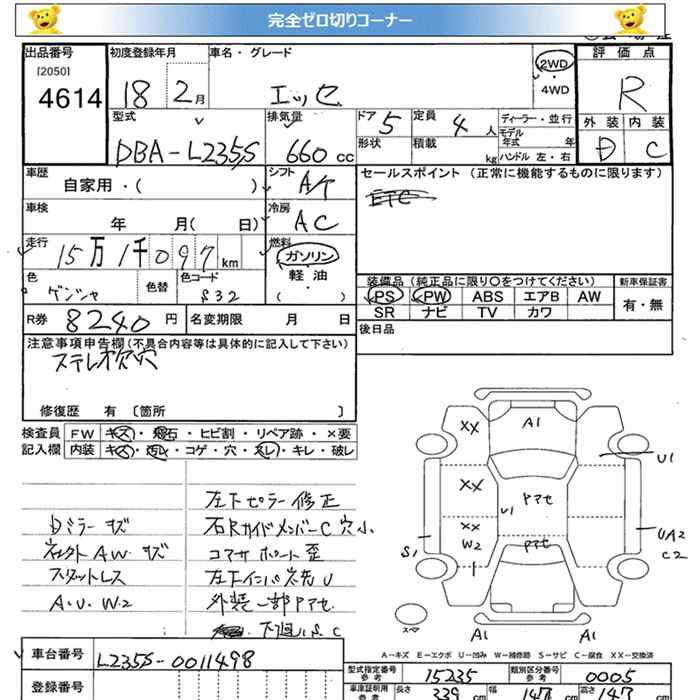 完全ゼロ切りコーナー
出品番号
[2050]
4614
初度登録年月
18 2月
車名・グレード
エッセ
2WD
・
4WD
評価点
R
外装 内装
D C
型式
DBA-L235S
排気量
660 cc
ドア 5
形状
定員 4 人
積載 kg
ディーラー・並行
モデル
年式 年
ハンドル 左・右
車歴
自家用・( )
シフト
A/T
セールスポイント (正常に機能するものに限ります)
ETC
車検
年 月( 日)
冷房
AC
走行
15万1千097km
燃料
ガソリン
軽・油
( )
色
色替
色コード
S32
装備品 (純正品に限り○をつけてください)
PS PW ABS エアB AW
SR ナビ TV カワ
新車保証書
有・無
R券 8240 円
名変期限 月 日
後日品
注意事項申告欄(不具合内容等は具体的に記入して下さい)
ステレオ欠穴
修復歴 有 [箇所 ]
検査員 FW キズ・飛石・ヒビ割・リペア跡・×要
記入欄 内装 キズ・汚レ・コゲ・穴・スレ・キレ・破レ
左下ピラー修正
Dミラーキズ
右Rサイドメンバー C 穴小
AW キズ
コアサポート歪
スペアタットレス
A・U・W2
外装一部Pアセ
下廻り S.C
A1
XX
U1
XX
U1
Pアセ
XX
W2
S1
Pアセ
UA2
C2
スペア
A1
A1
A-キズ E-エクボ U-凹み W-補修跡 S-サビ C-腐食 XX-交換済
車台番号
L235S-0011498
登録番号
型式指定番号
参考
15235
類別区分番号
参考
0005
車庫証明用
参考
長さ 339 cm
幅 147 cm
高さ 147 cm